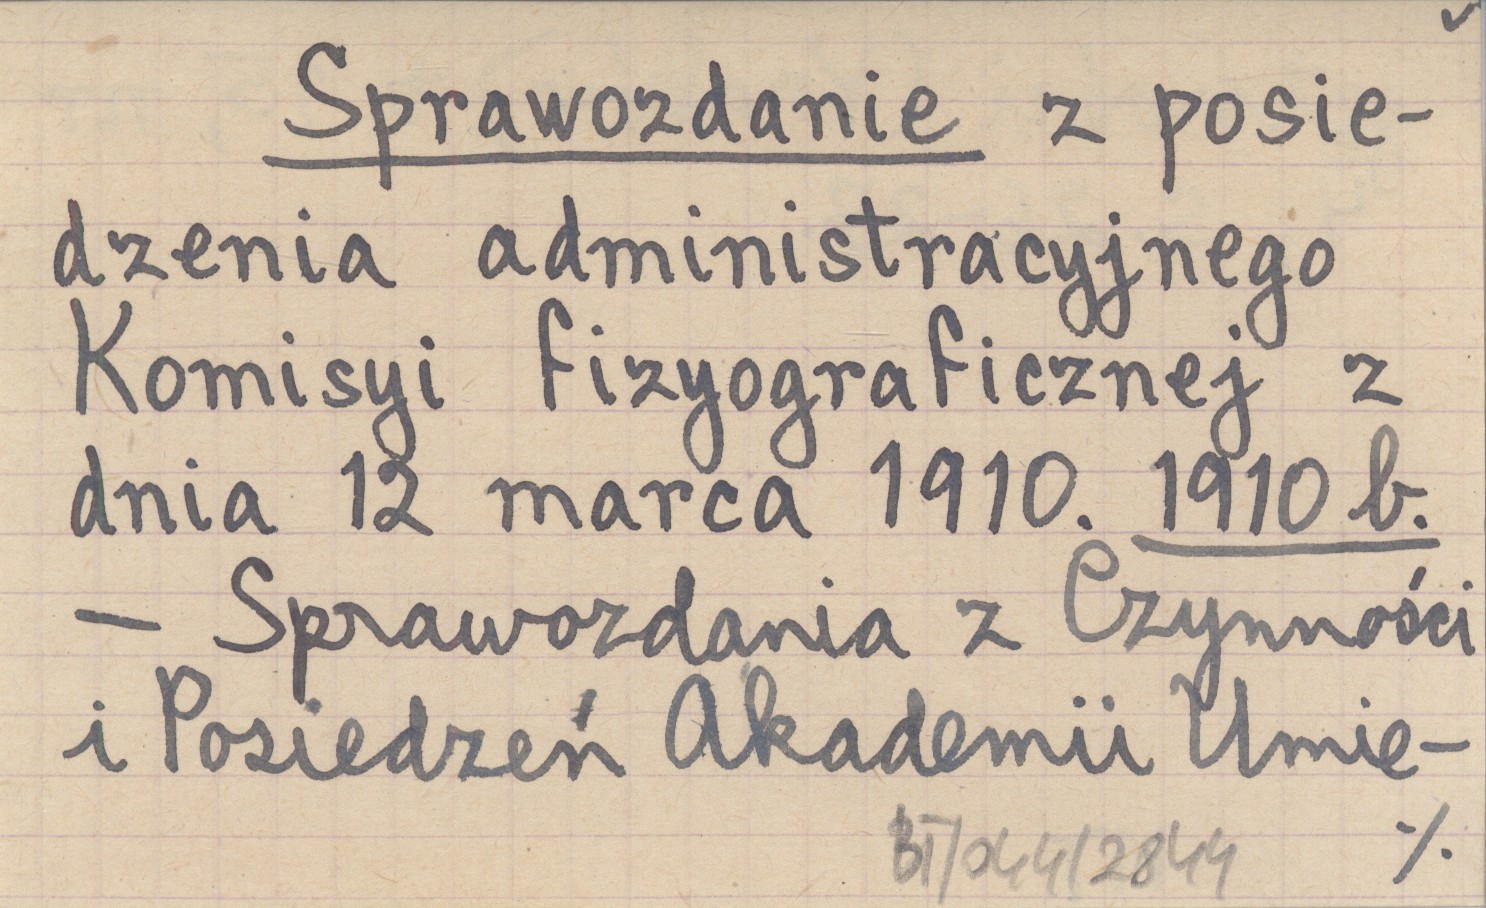 Sprawozdanie z posie-
dzenia administracyjnego
Komisyi fizyograficznej z
dnia 12 marca 1910. 1910 b.
— Sprawozdania z Czynności
i Posiedzeń Akademii Umie-
BT/044/2844 ·/.